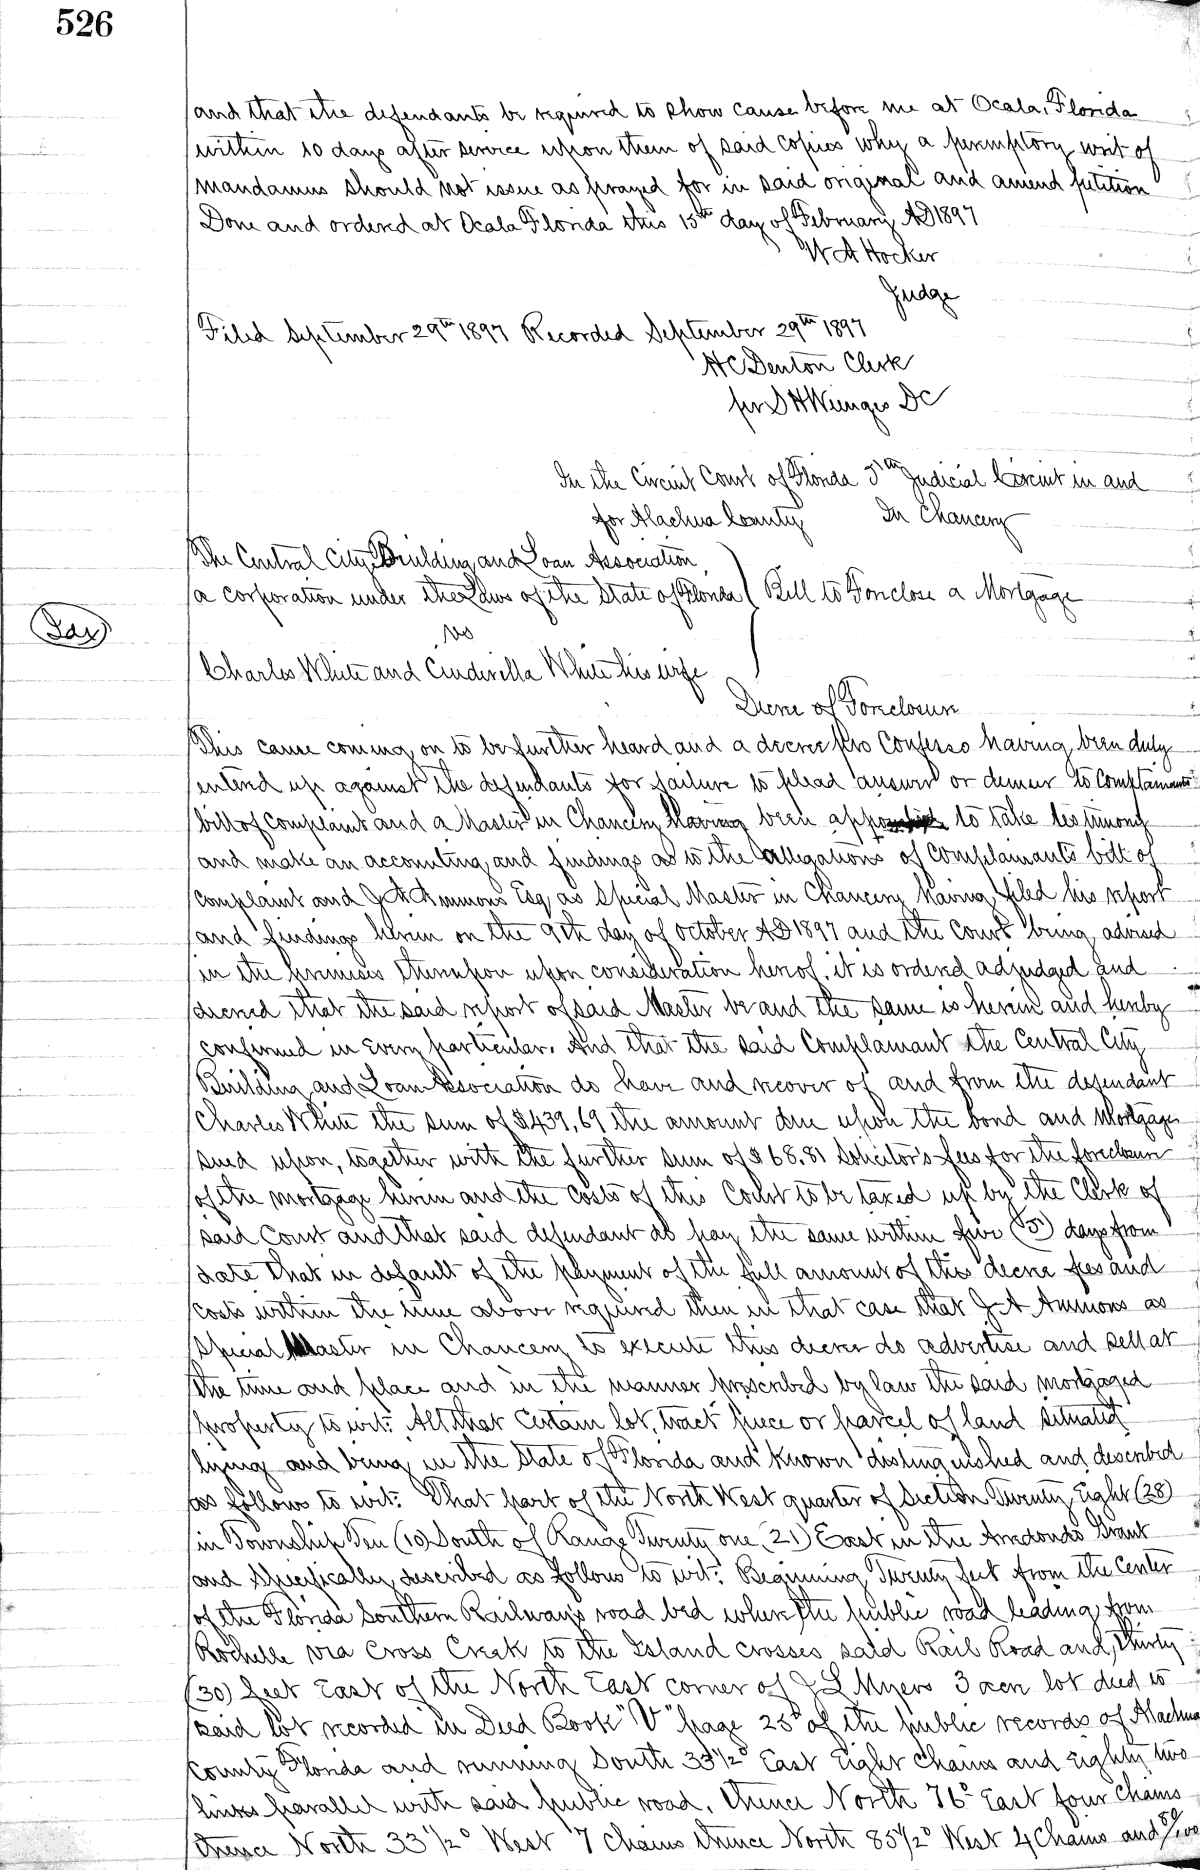 526
and that the defendants be required to show cause before me at Ocala, Florida
within 10 days after service upon them of said copies why a peremptory writ of
mandamus should not issue as prayed for in said original and amend petition
Done and ordered at Ocala Florida this 15th day of February AD 1897
W A Hocker
Judge
Filed September 29th 1897 Recorded September 29th 1897
H C Denton Clerk
per S H Wienges DC
In the Circuit Court of Florida 5th Judicial Circuit in and
for Alachua County In Chancery
The Central City Building and Loan Association,
a corporation under the Laws of the State of Florida } Bill to Foreclose a Mortgage
vs
Charles White and Cinderilla White his wife
Decree of Foreclosure
This cause coming on to be further heard and a decree pro Confesso having been duly
entered up against the defendants for failure to plead answer or demur to Complainants
bill of complaint and a Master in Chancery having been appointed to take testimony
and make an accounting and findings as to the allegations of Complainants bill of
complaint and J A Ammons Esq as Special Master in Chancery having filed his report
and findings herein on the 9th day of October AD 1897 and the Court being advised
in the premises thereupon upon consideration hereof, it is ordered adjudged and
decreed that the said report of said Master be and the same is herein and hereby
confirmed in every particular. And that the said Complainant the Central City
Building and Loan Association do have and recover of and from the defendant
Charles White the sum of $439,69 the amount due upon the bond and Mortgage
sued upon, together with the further sum of $68.81 Solicitor's fees for the foreclosure
of the mortgage herein and the costs of this Court to be taxed up by the Clerk of
said Court and that said defendant do pay the same within five (5) days from
date that in default of the payment of the full amount of this decree fees and
costs within the time above required then in that case that J A Ammons as
Special Master in Chancery to execute this decree do advertise and sell at
the time and place and in the manner prescribed by law the said mortgaged
property to wit: All that certain lot, tract piece or parcel of land situated
lying and being in the State of Florida and known distinguished and described
as follows to wit: That part of the North West quarter of Section Twenty Eight (28)
in Township Ten (10) South of Range Twenty one (21) East in the Arredondo Grant
and specifically described as follows to wit: Beginning Twenty feet from the center
of the Florida Southern Railway's road bed where the public road leading from
Rochelle via Cross Creek to the Island crosses said Rail Road and, thirty
(30) feet East of the North East corner of J L Myers 3 acre lot deed to
said lot recorded in Deed Book "V" page 25 of the public records of Alachua
County Florida and running South 33 1/2° East Eight Chains and eighty two
links parallel with said public road, thence North 76° East four Chains
thence North 33 1/2° West 7 Chains thence North 85 1/2° West 4 Chains and